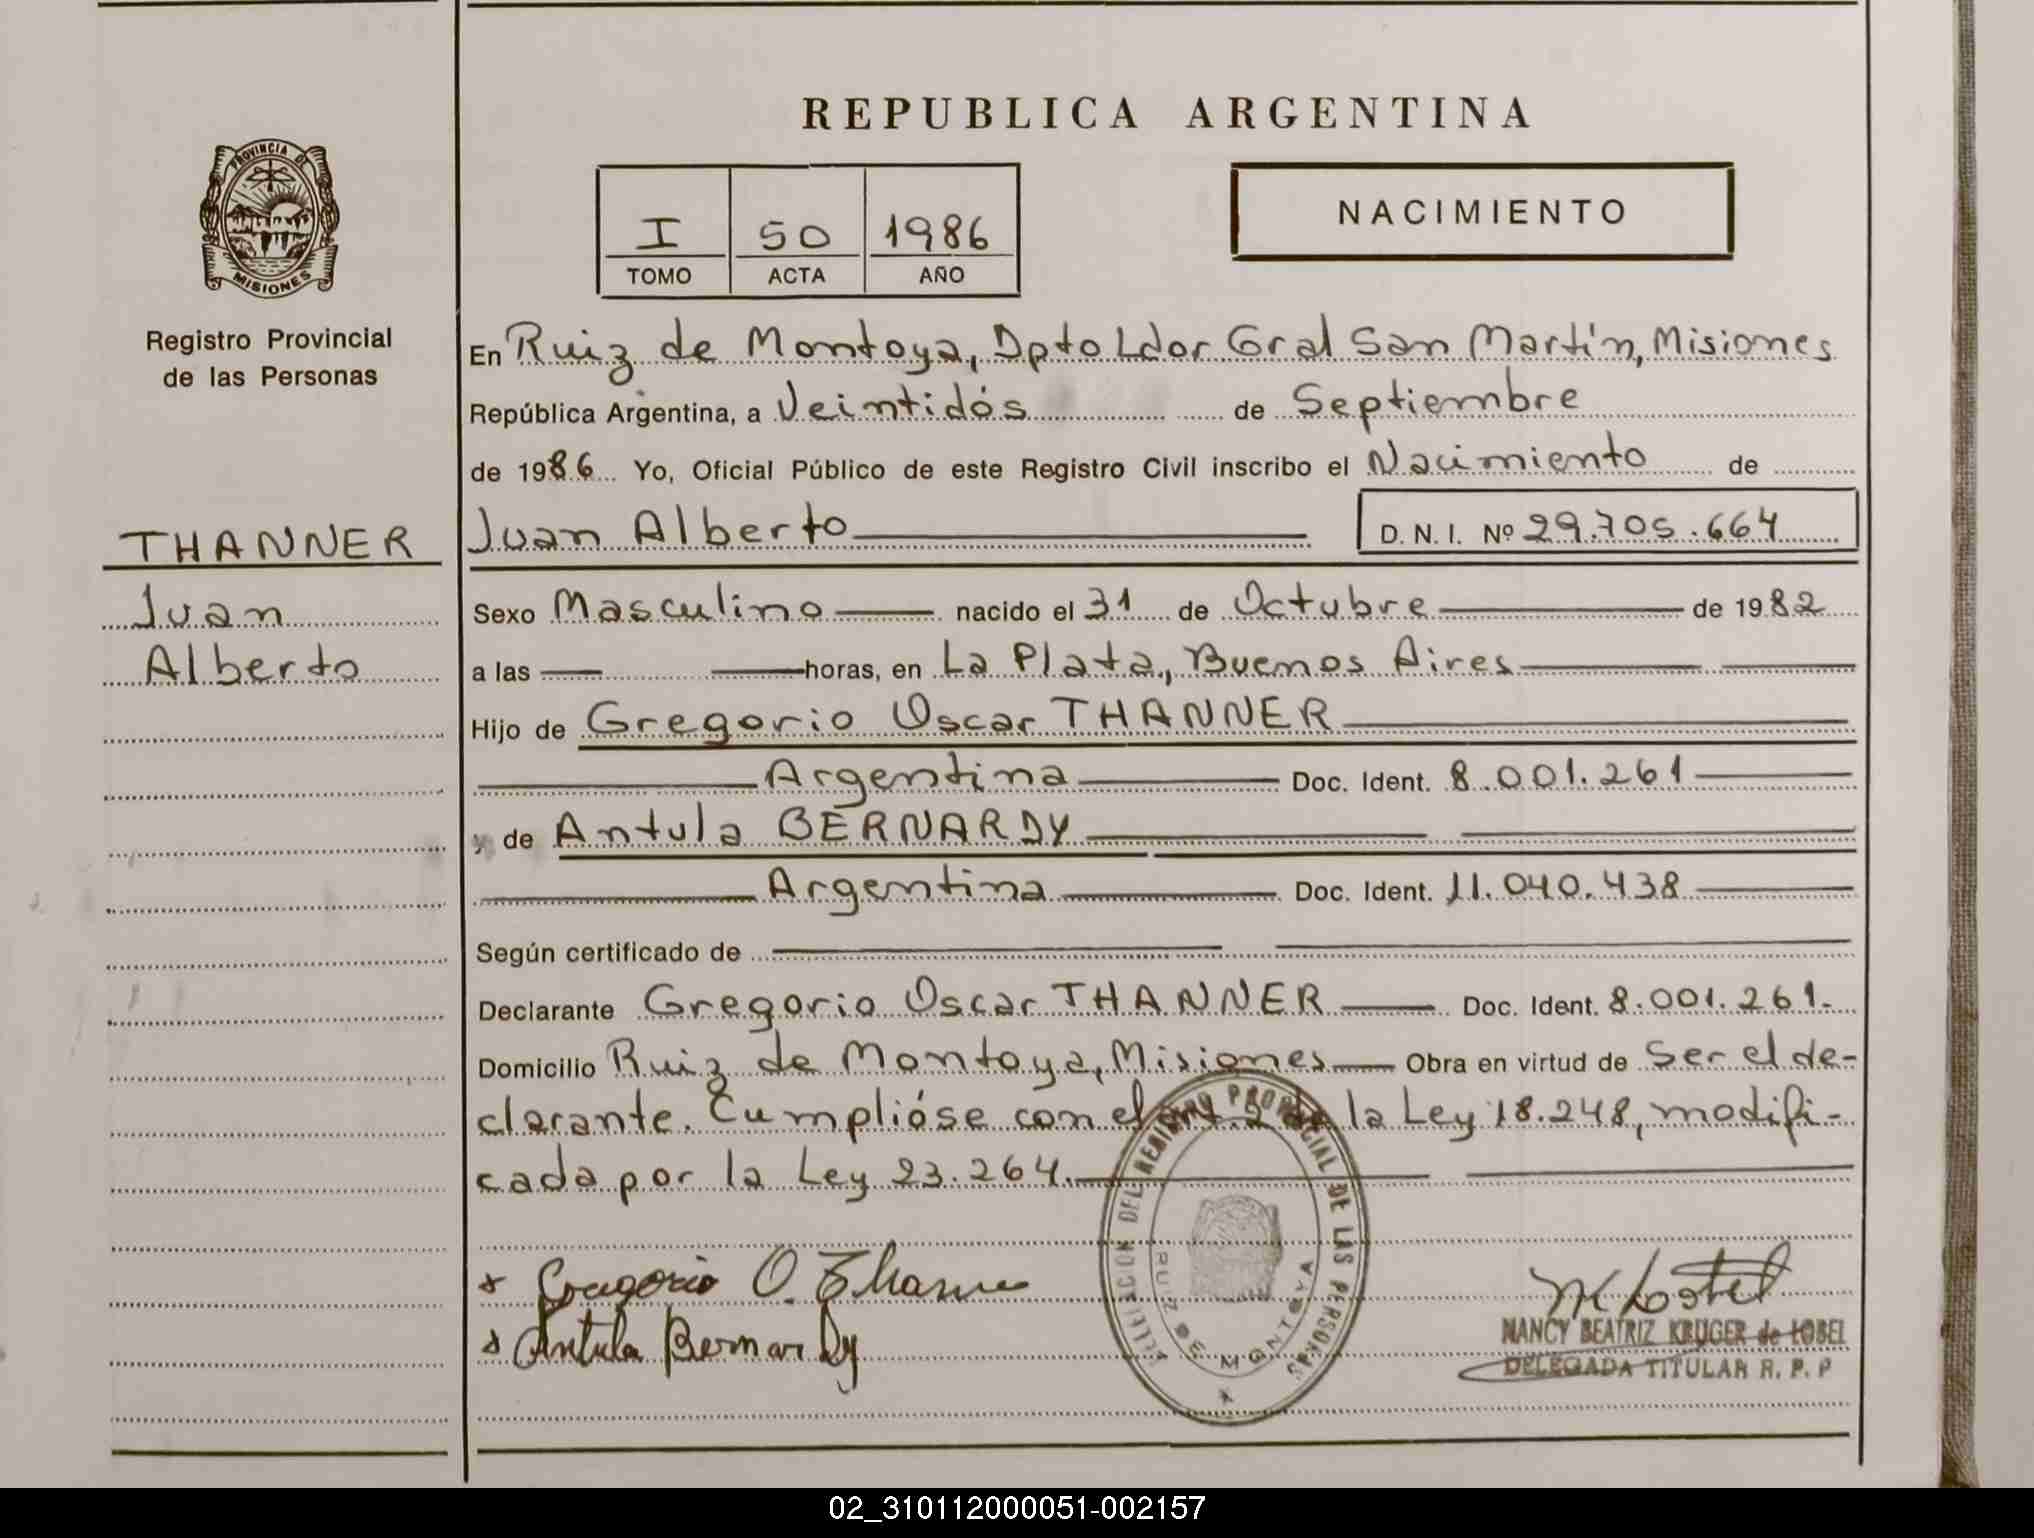 REPUBLICA ARGENTINA
PROVINCIA DE
MISIONES
Registro Provincial
de las Personas
I 50 1986
TOMO ACTA AÑO
NACIMIENTO
En Ruiz de Montoya, Dpto Ldor Gral San Martín, Misiones
República Argentina, a Veintidós de Septiembre
de 1986 Yo, Oficial Público de este Registro Civil inscribo el Nacimiento de
THANNER
Juan
Alberto
Juan Alberto D. N. I. Nº 29.705.664
Sexo Masculino nacido el 31 de Octubre de 1982
a las horas, en La Plata, Buenos Aires
Hijo de Gregorio Oscar THANNER
Argentina Doc. Ident. 8.001.261
y de Antula BERNARDY
Argentina Doc. Ident. 11.040.438
Según certificado de
Declarante Gregorio Oscar THANNER Doc. Ident. 8.001.261.
Domicilio Ruiz de Montoya, Misiones Obra en virtud de Ser el de-
clarante. Cumplióse con el Art. 2 de la Ley 18.248, modifi-
cada por la Ley 23.264.
Gregorio O. Thanner
Antula Bernardy
DEL REGISTRO PROVINCIAL DE LAS PERSONAS
RUIZ DE MONTOYA
NANCY BEATRIZ KRUGER de LOBEL
DELEGADA TITULAR R. P. P
02_310112000051-002157